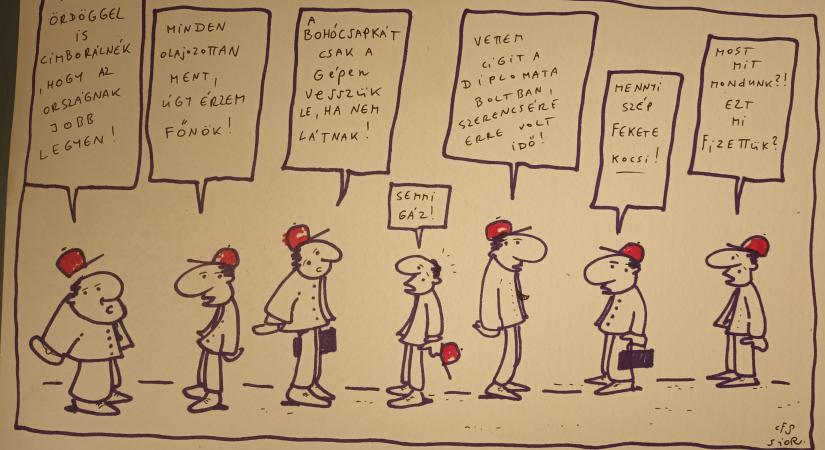 ÖRDÖGGEL
IS
CIMBORÁLNÉK
, HOGY AZ
ORSZÁGNAK
JOBB
LEGYEN!
MINDEN
OLAJOZOTTAN
MENT,
ÚGY ÉRZEM
FŐNÖK!
A
BOHÓCSAPKÁT
CSAK A
GÉPEN
VESSZÜK
LE, HA NEM
LÁTNAK!
SEMMI
GÁZ!
VETTEM
CIGIT A
DIPLOMATA
BOLTBAN,
SZERENCSÉRE
ERRE VOLT
IDŐ!
MENNYI
SZÉP
FEKETE
KOCSI!
MOST
MIT
MONDUNK?!
EZT
MI
FIZETTÜK?